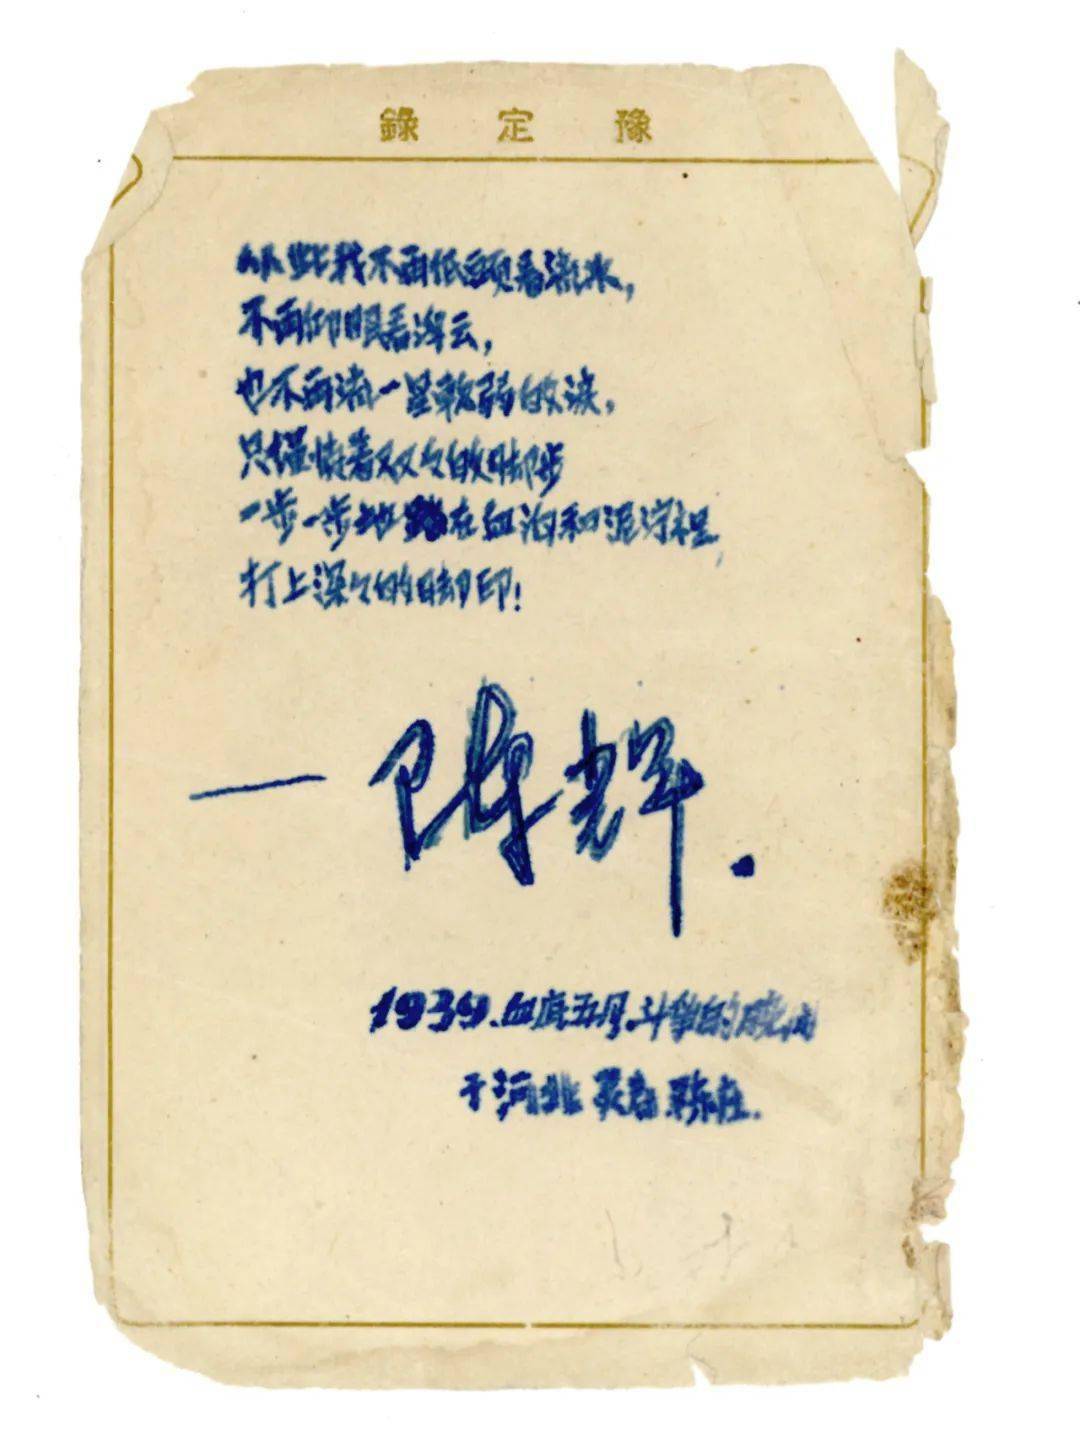 豫定錄
从此我不再低頭看流水，
不再仰眼看浮云，
也不再流一星軟弱的淚，
只僅着双々的脚步
一步一步地踏在血泊和泥泞裡，
打上深々的脚印！
— 陈辉.
1939.血底五月.斗争的
于河北 灵寿 陈庄.